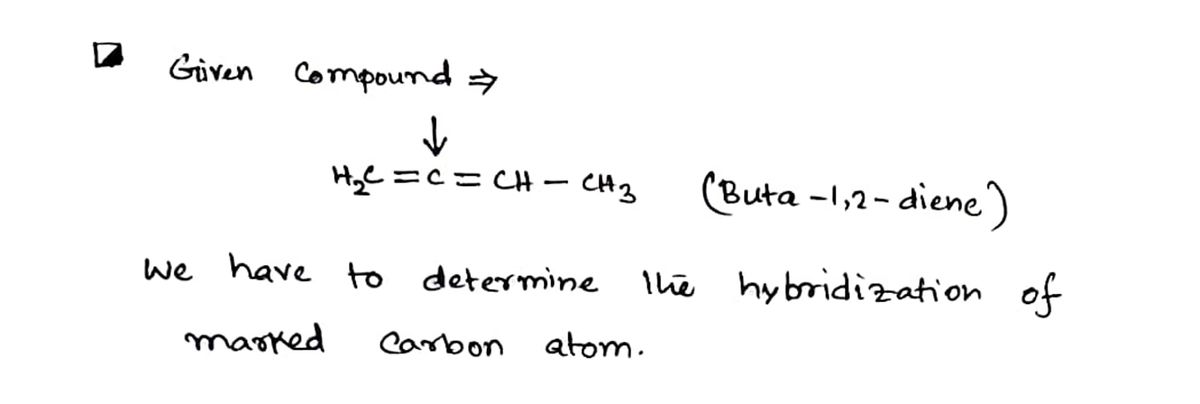 Given Compound ⇒
↓
H₂C = C = CH – CH₃ (Buta-1,2-diene)
We have to determine the hybridization of
marked Carbon atom.